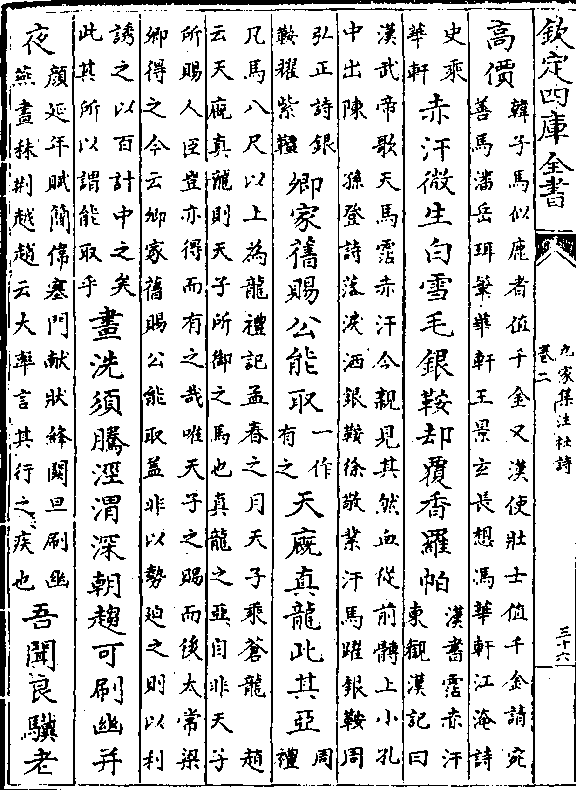 欽定四庫全書
九家集注杜詩
卷二
三十六
高價
韓子馬似鹿者值千金又漢使壯士值千金請宛
善馬潘岳珥筆華軒王景玄長想馮華軒江淹詩
史乘
華軒
赤汗微生白雪毛銀鞍却覆香羅帕
漢書霑赤汗
東觀漢記曰
漢武帝歌天馬霑赤汗今親見其然血從前髆上小孔
中出陳 孫登詩落淚洒銀鞍徐敬業汗馬躍銀鞍周
弘正詩銀
鞍耀紫韁
卿家舊賜公能取
一作
有之
天廐真龍此其亞
周
禮
凡馬八尺以上為龍禮記孟春之月天子乘蒼龍 趙
云天廐真龍則天子所御之馬也真龍之亞自非天子
所賜人臣豈亦得而有之哉唯天子之賜而後太常梁
卿得之今云卿家舊賜公能取蓋非以勢廹之則以利
誘之以百計中之矣
此其所以謂能取乎
晝洗須騰涇渭深朝趨可刷幽并
夜
顔延年賦簡偉塞門献狀絳闕旦刷幽
燕晝秣荆越趙云大率言其行之疾也
吾聞良驥老